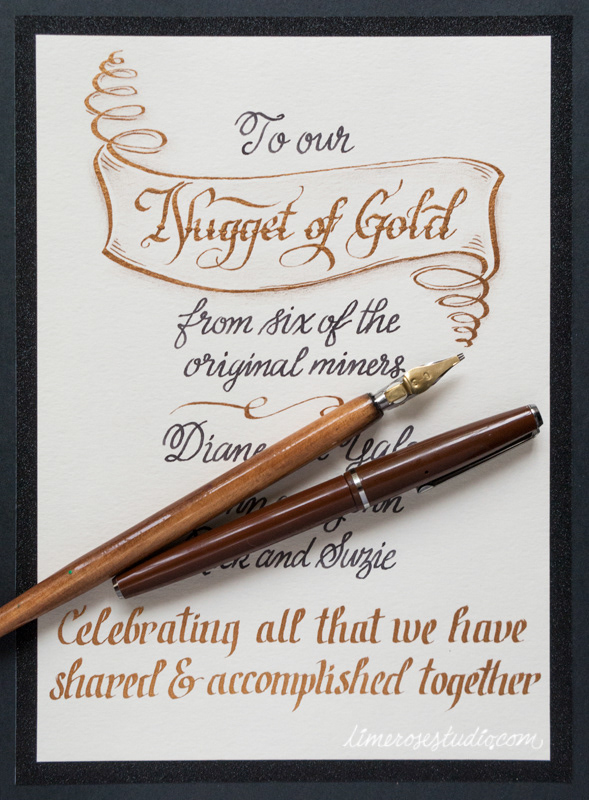 To our
Nugget of Gold
from six of the
original miners
Diane
and Suzie
Celebrating all that we have
shared & accomplished together
limerosestudio.com